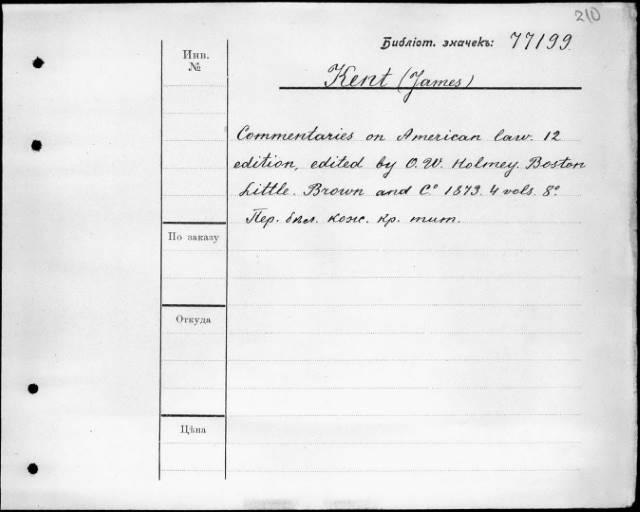 210
Библіот. значекъ: 77199
Инв.
№
Kent (James)
Commentaries on American law. 12
edition, edited by O. W. Holmey. Boston
Little. Brown and Cº 1873. 4 vols. 8º
Пер. бѣл. кож. кр. тит.
По заказу
Откуда
Цѣна